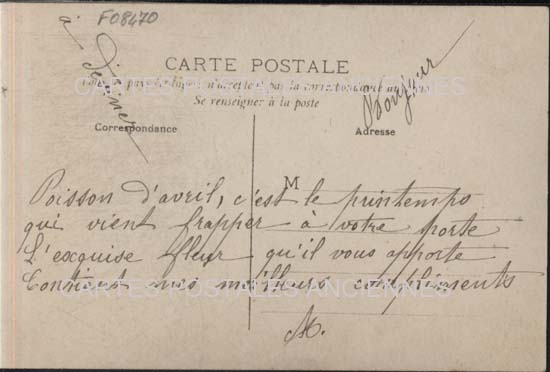 F08470
à Jeanne
CARTE POSTALE
Tous les pays étrangers n'acceptent pas la correspondance au recto
Se renseigner à la poste
Bonjour
Correspondance
Adresse
M
Poisson d'avril, c'est le printemps
qui vient frapper à votre porte
L'exquise fleur qu'il vous apporte
Contient mes meilleurs compliments
M.
CARTES POSTALES ANCIENNES
CARTES POSTALES ANCIENNES